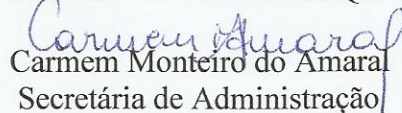 Carmem Amaral
Carmem Monteiro do Amaral
Secretária de Administração